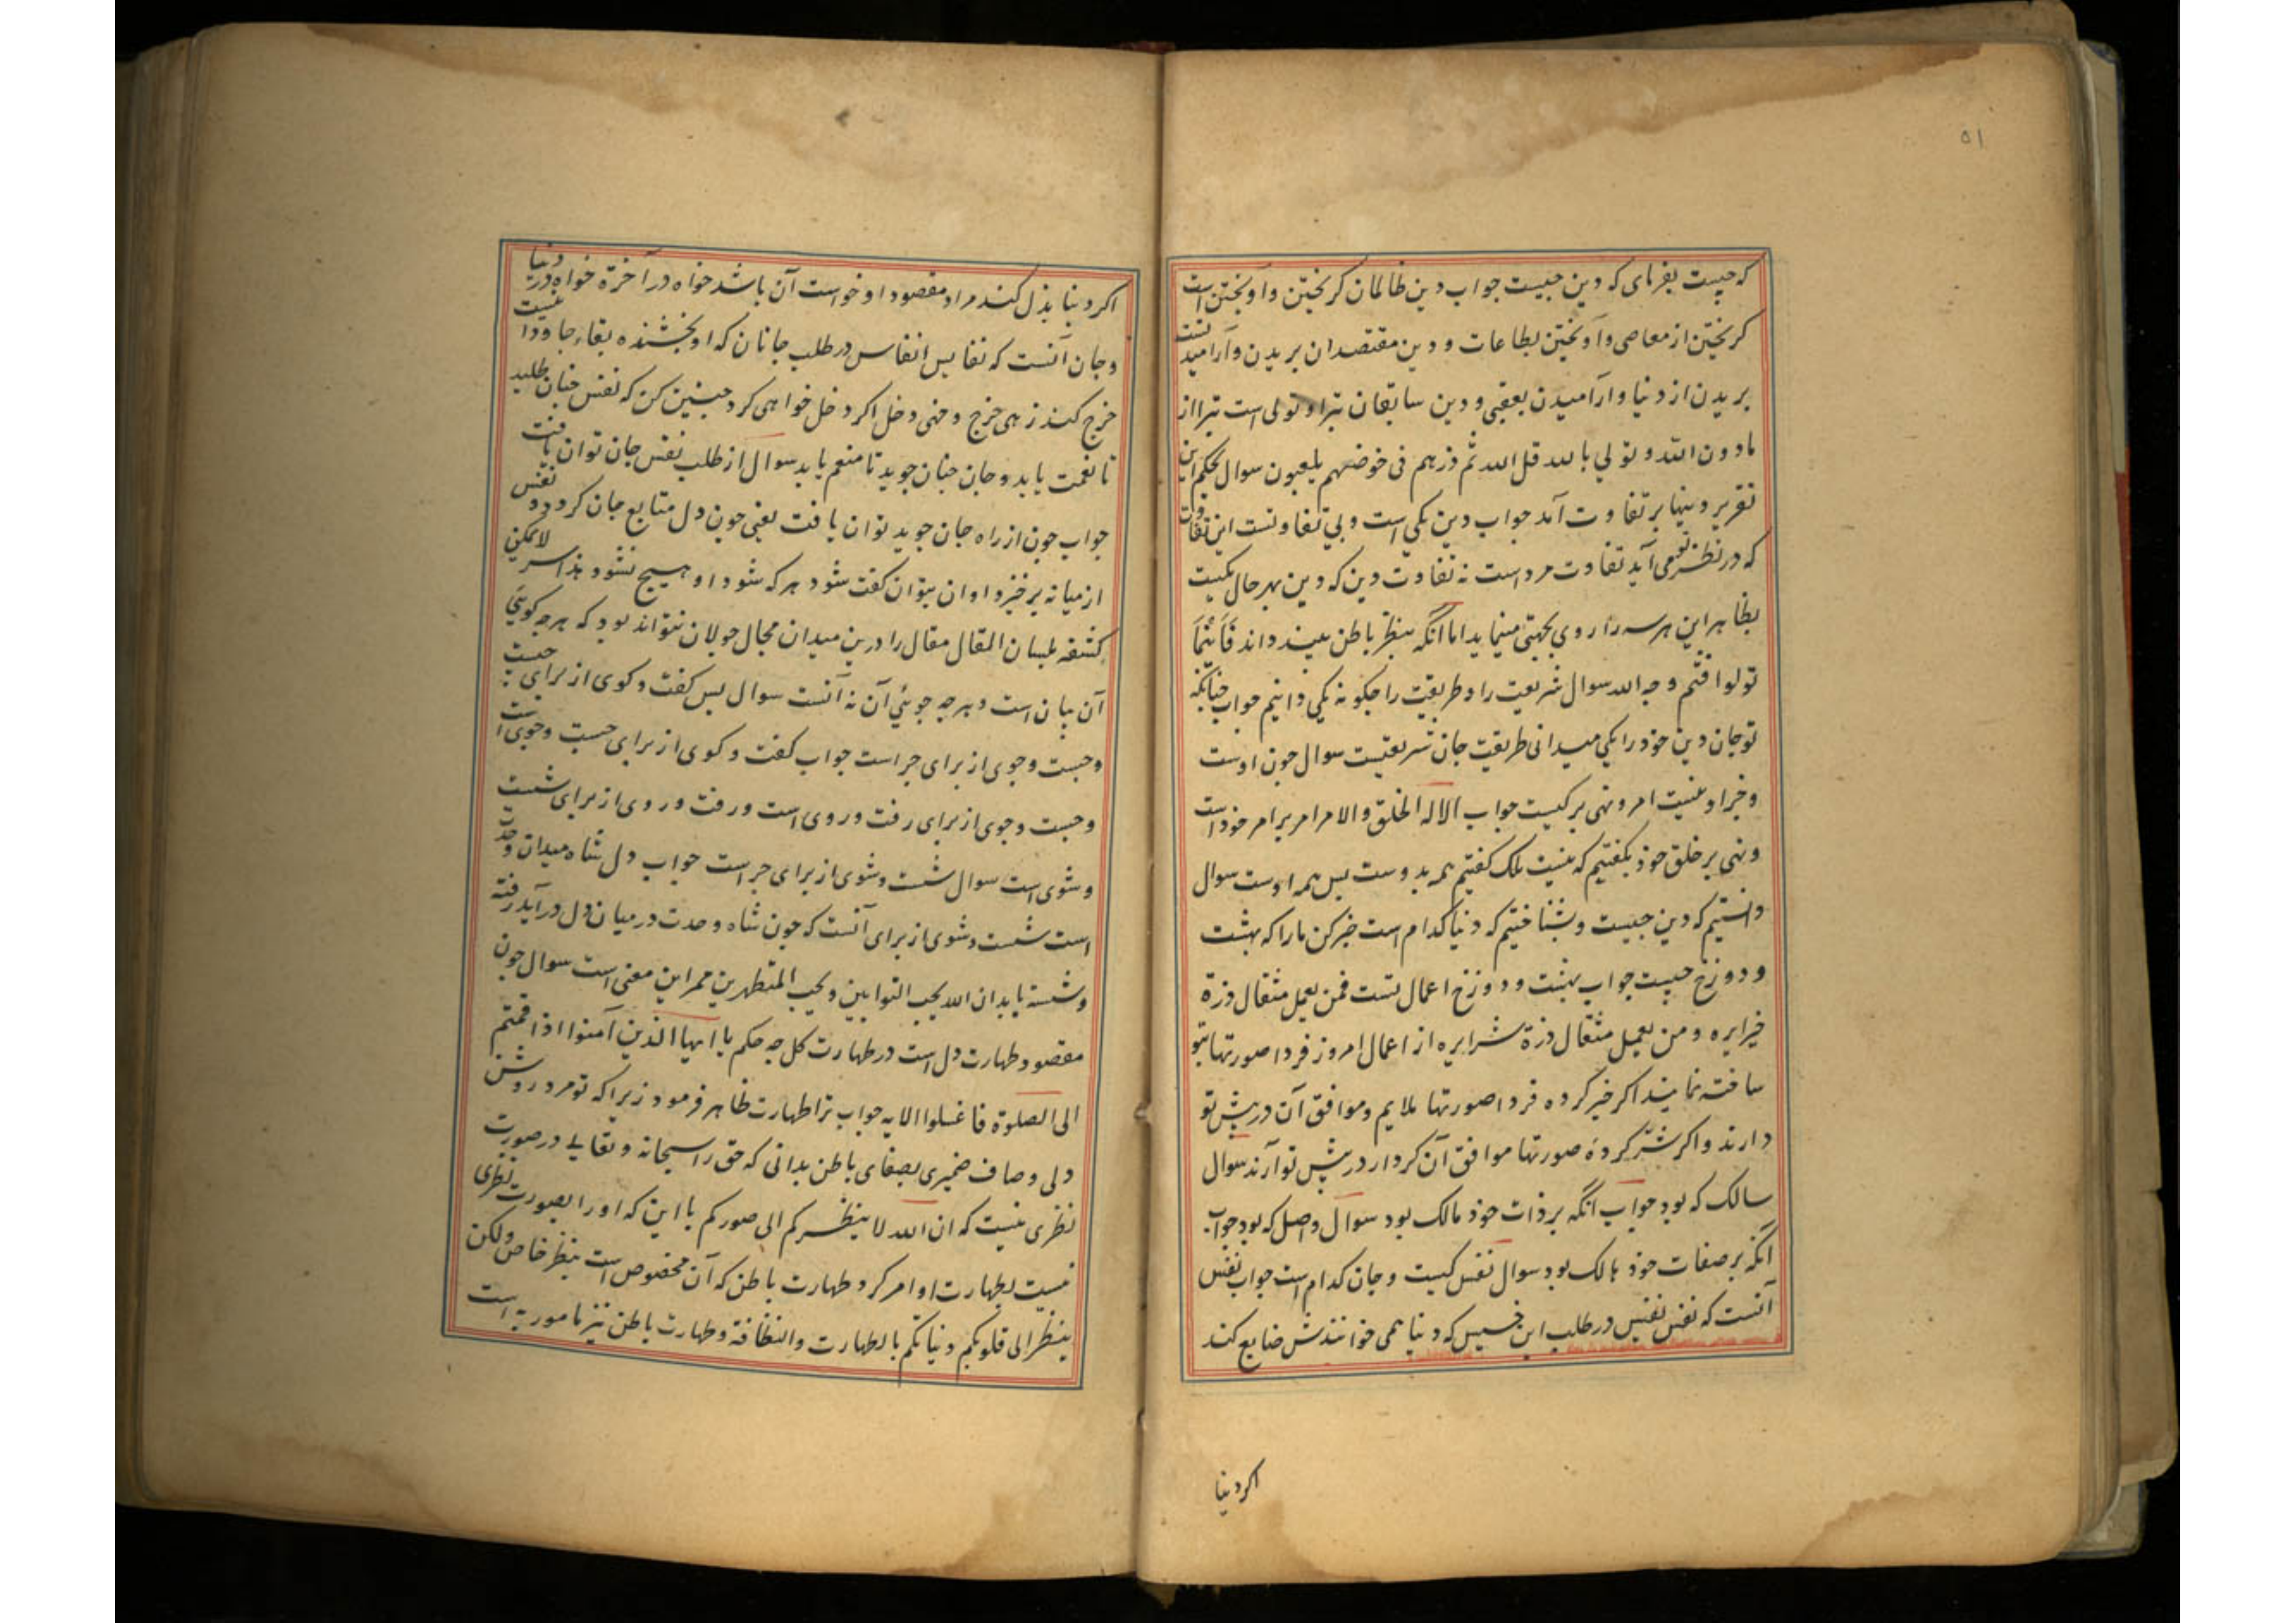 ۵۱
که چیست بفرمای که دین چیست جواب دین ظالمان کریختن و آویختن است
کریختن از معاصی و آویختن بطاعات و دین مقتصدان بریدن و آرامیدنست
بریدن از دنیا و آرامیدن بعقبی و دین سابقان تبرا و تولی است تبرا از
مادون الله و تولی بالله قل الله ثم ذرهم فی خوضهم یلعبون سوال بحکم این
تقریر دینها بر تفاوت آمد جواب دین یکی است و بی تفاوتست این تفاوت
که در نظر تو می آید تفاوت مرد است نه تفاوت دین که دین بهر حال یکیست
بظاهر این هر سه را روی بجهتی مینماید اما آنکه بنظر باطن بیند داند فَاَینَمَا
تولوا فثم وجه الله سوال شریعت را و طریقت را چکونه یکی دانیم جواب چنانکه
تو جان و تن خود را یکی میدانی طریقت جان شریعتست سوال چون اوست
و جز او نیست امر و نهی بر کیست جواب الا له الخلق والامر امر بر امر خود است
و نهی بر خلق خود بکفتیم که نیست بلک کفتیم همه بدوست پس همه اوست سوال
دانستیم که دین چیست و بشناختیم که دنیا کدام است خبر کن ما را که بهشت
و دوزخ چیست جواب بهشت و دوزخ اعمال تست فمن یعمل مثقال ذرة
خیرا یره و من یعمل مثقال ذرة شرا یره از اعمال امروز فردا صورتها بتو
ساخته نمایند اکر خیر کرده فردا صورتها ملایم و موافق آن در پیش تو
دارند و اکر شر کردهٔ صورتها موافق آن کردار در پیش تو آرند سوال
سالک که بود جواب آنکه بر ذات خود مالک بود سوال واصل که بود جواب
آنکه بر صفات خود هالک بود سوال نفس کیست و جان کدام است جواب نفس
آنست که نفس نفیس در طلب این خسیس که دنیا همی خوانندش ضایع کند
اکر دنیا
اکر دنیا بذل کند مراد و مقصود او خواست آن باشد خواه در آخرة خواه در دنیا
و جان آنست که نفایس انفاس در طلب جانان که او بخشنده بقاء جاودانیست
خرج کند زهی خرج و خهی دخل اکر دخل خواهی کرد چنین کن که نفس جنان طلبد
تا نعمت یابد و جان جنان جوید تا منعم یابد سوال از طلب نفس جان توان یافت
جواب چون از راه جان جوید توان یافت یعنی چون دل متابع جان کردد و نفس
از میانه برخیزد او ان بتوان کفت شود هر که شود او هیچ نشود هذا سر لا یمکن
کشفه بلسان المقال مقال را درین میدان مجال جولان نتواند بود که هر چه کویی
آن بیان است و هر چه جوئی آن نه آنست سوال پس کفت و کوی از برای چیست
و جست و جوی از برای چراست جواب کفت و کوی از برای جست و جوی است
و جست و جوی از برای رفت و روی است و رفت و روی از برای شست
و شوی است سوال شست و شوی از برای چراست جواب دل شاه میدان وحدت
است شست و شوی از برای آنست که چون شاه وحدت در میان دل درآید رفته
و شسته یابد ان الله یحب التوابین و یحب المتطهرین ممر این معنی است سوال چون
مقصود طهارت دل است در طهارت کل چه حکم یا ایها الذین آمنوا اذا قمتم
الی الصلوة فاغسلوا الایه جواب ترا طهارت ظاهر فرمود زیرا که تو مرد روشن
دلی و صاف ضمیری بصفای باطن بدانی که حق را سبحانه و تعالی در صورت
نظری نیست که ان الله لا ینظر کم الی صورکم با این که او را بصورت نظری
نیست بطهارت او امر کرد و طهارت باطن که آن مخصوص است بنظر خاص ولکن
ینظر الی قلوبکم و نیاتکم بالطهارت والنظافة و طهارت باطن نیز مامور به است